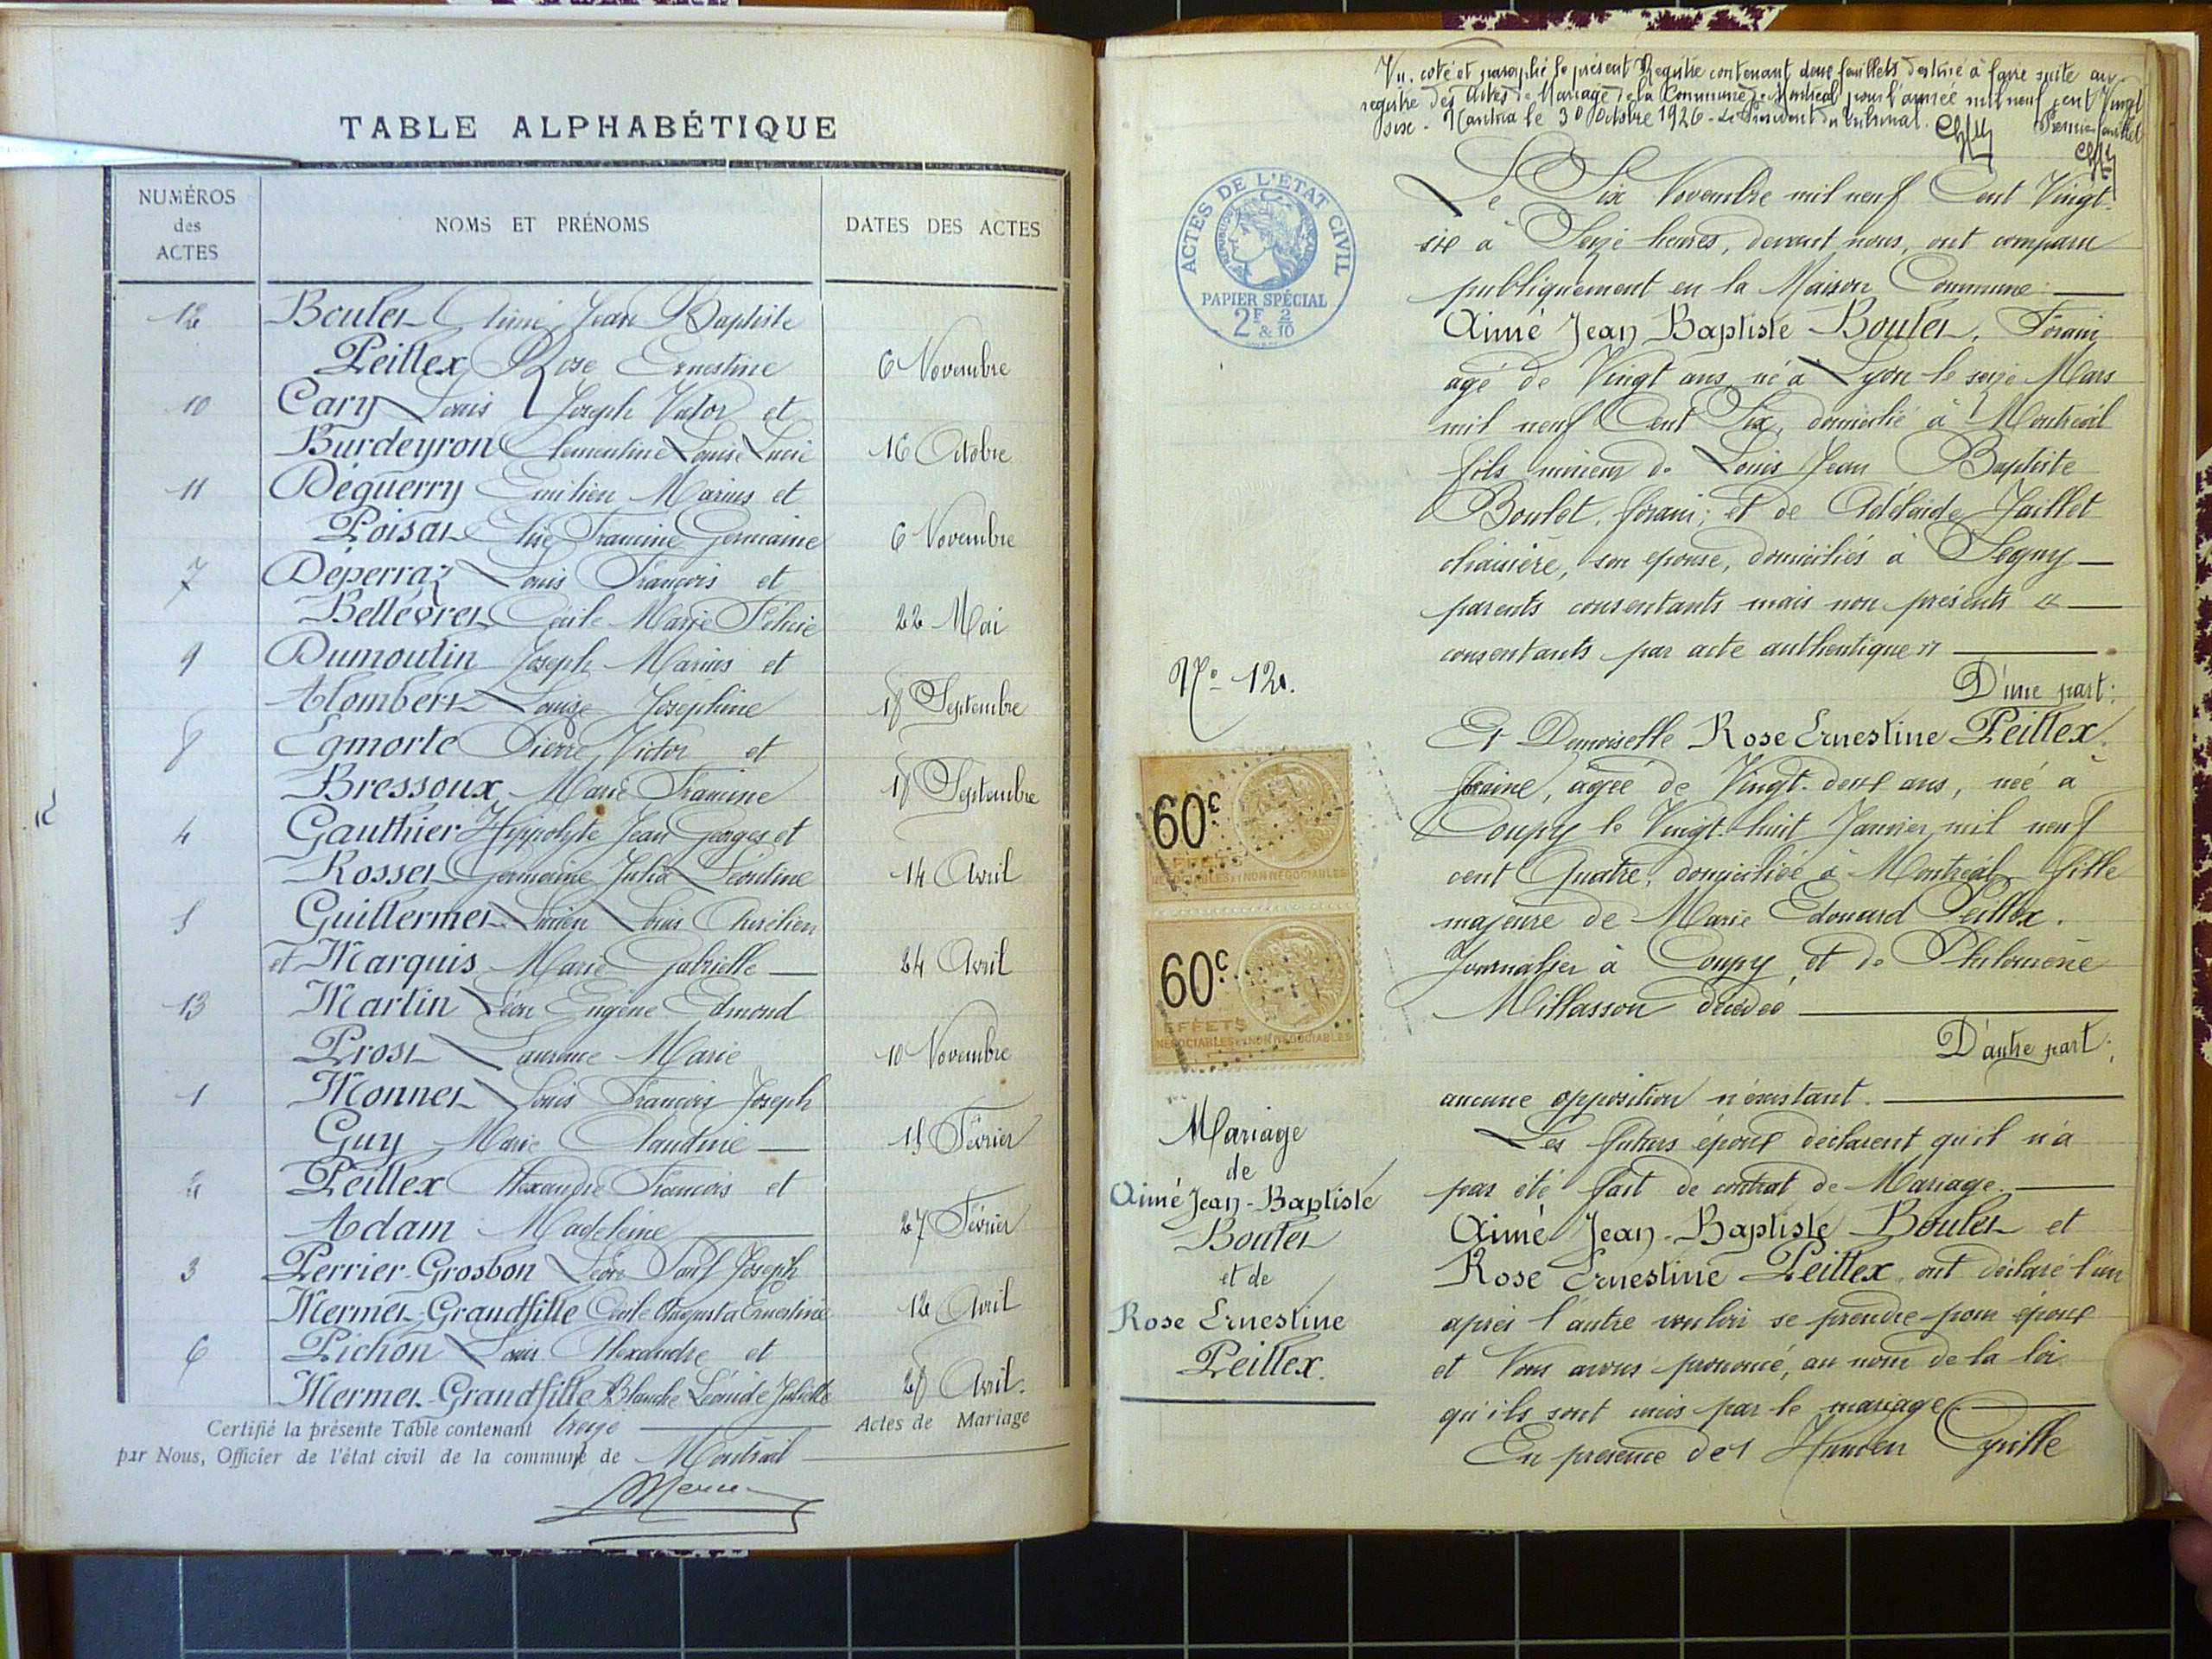 TABLE ALPHABÉTIQUE
NUMÉROS des ACTES
NOMS ET PRÉNOMS
DATES DES ACTES
12 Boulet Aimé Jean Baptiste
Peillex Rose Ernestine 6 Novembre
10 Cary Louis Joseph Victor et
Burdeyron Clementine Louise Lucie 16 Octobre
11 Déguerry Emilien Marius et
Poisat Francine Germaine 6 Novembre
7 Déperraz Louis François et
Bellévret Cécile Marie Félicie 22 Mai
9 Dumoulin Joseph Marius et
Alombert Louise Josephine 18 Septembre
8 Egmorte Pierre Victor et
Bressoux Marie Francine 18 Septembre
4 Gauthier Hippolyte Jean Georges et
Rosset Germaine Julia Léontine 14 Avril
5 Guillermet Lucien Louis Aurélien
et Marquis Marie Gabrielle 24 Avril
13 Martin Léon Eugène Edmond
Prost Laurence Marie 10 Novembre
1 Monnet Louis François Joseph
Guy Marie Claudine 15 Février
2 Peillex Alexandre François et
Adam Madeleine 27 Février
3 Perrier-Grosbon Léon Paul Joseph
Mermet-Grandfille Cécile Augusta Ernestine 12 Avril
6 Pichon Louis Alexandre et
Mermet-Grandfille Blanche Léonide Juliette 28 Avril.
Certifié la présente Table contenant treize Actes de Mariage
par Nous, Officier de l'état civil de la commune de Montréal
Vu, coté et paraphé le présent Registre contenant deux feuillets destiné à faire suite au
registre des Actes de Mariage de la Commune de Montréal pour l'année mil neuf cent Vingt
six - Nantua le 30 Octobre 1926 - Le Président du Tribunal. Premier feuillet
ACTES DE L'ÉTAT CIVIL
RÉPUBLIQUE FRANÇAISE
PAPIER SPÉCIAL
2F & 2/10
Le Six Novembre mil neuf Cent Vingt-
six à Seize heures, devant nous, ont comparu
publiquement en la Maison Commune:
Aimé Jean Baptiste Boulet, Forain
agé de Vingt ans, né à Lyon le seize Mars
mil neuf Cent Six, domicilié à Montréal
fils mineur de Louis Jean Baptiste
Boulet, forain; et de Adélaïde Jaillet
chaisière, son epouse, domiciliés à Segny
parents consentants mais non présents "
consentants par acte authentique "
D'une part:
Et Demoiselle Rose Ernestine Peillex.
foraine, agée de Vingt-deux ans, née à
Coupy le Vingt-huit Janvier mil neuf
cent Quatre, domiciliée à Montréal, fille
majeure de Marie Edouard Peillex.
Journalier à Coupy, et de Philomène
Millasson décédée
D'autre part;
aucune opposition n'existant.
Les futurs époux déclarent qu'il n'a
pas été fait de contrat de Mariage.
Aimé Jean-Baptiste Boulet et
Rose Ernestine Peillex, ont déclaré l'un
après l'autre vouloir se prendre pour époux
et Nous avons prononcé, au nom de la loi
qu'ils sont unis par le mariage
En presence de: Cyrille
No 12.
60c
EFFETS
NÉGOCIABLES ET NON NÉGOCIABLES
60c
EFFETS
NÉGOCIABLES ET NON NÉGOCIABLES
Mariage
de
Aimé Jean-Baptiste
Boulet
et de
Rose Ernestine
Peillex.